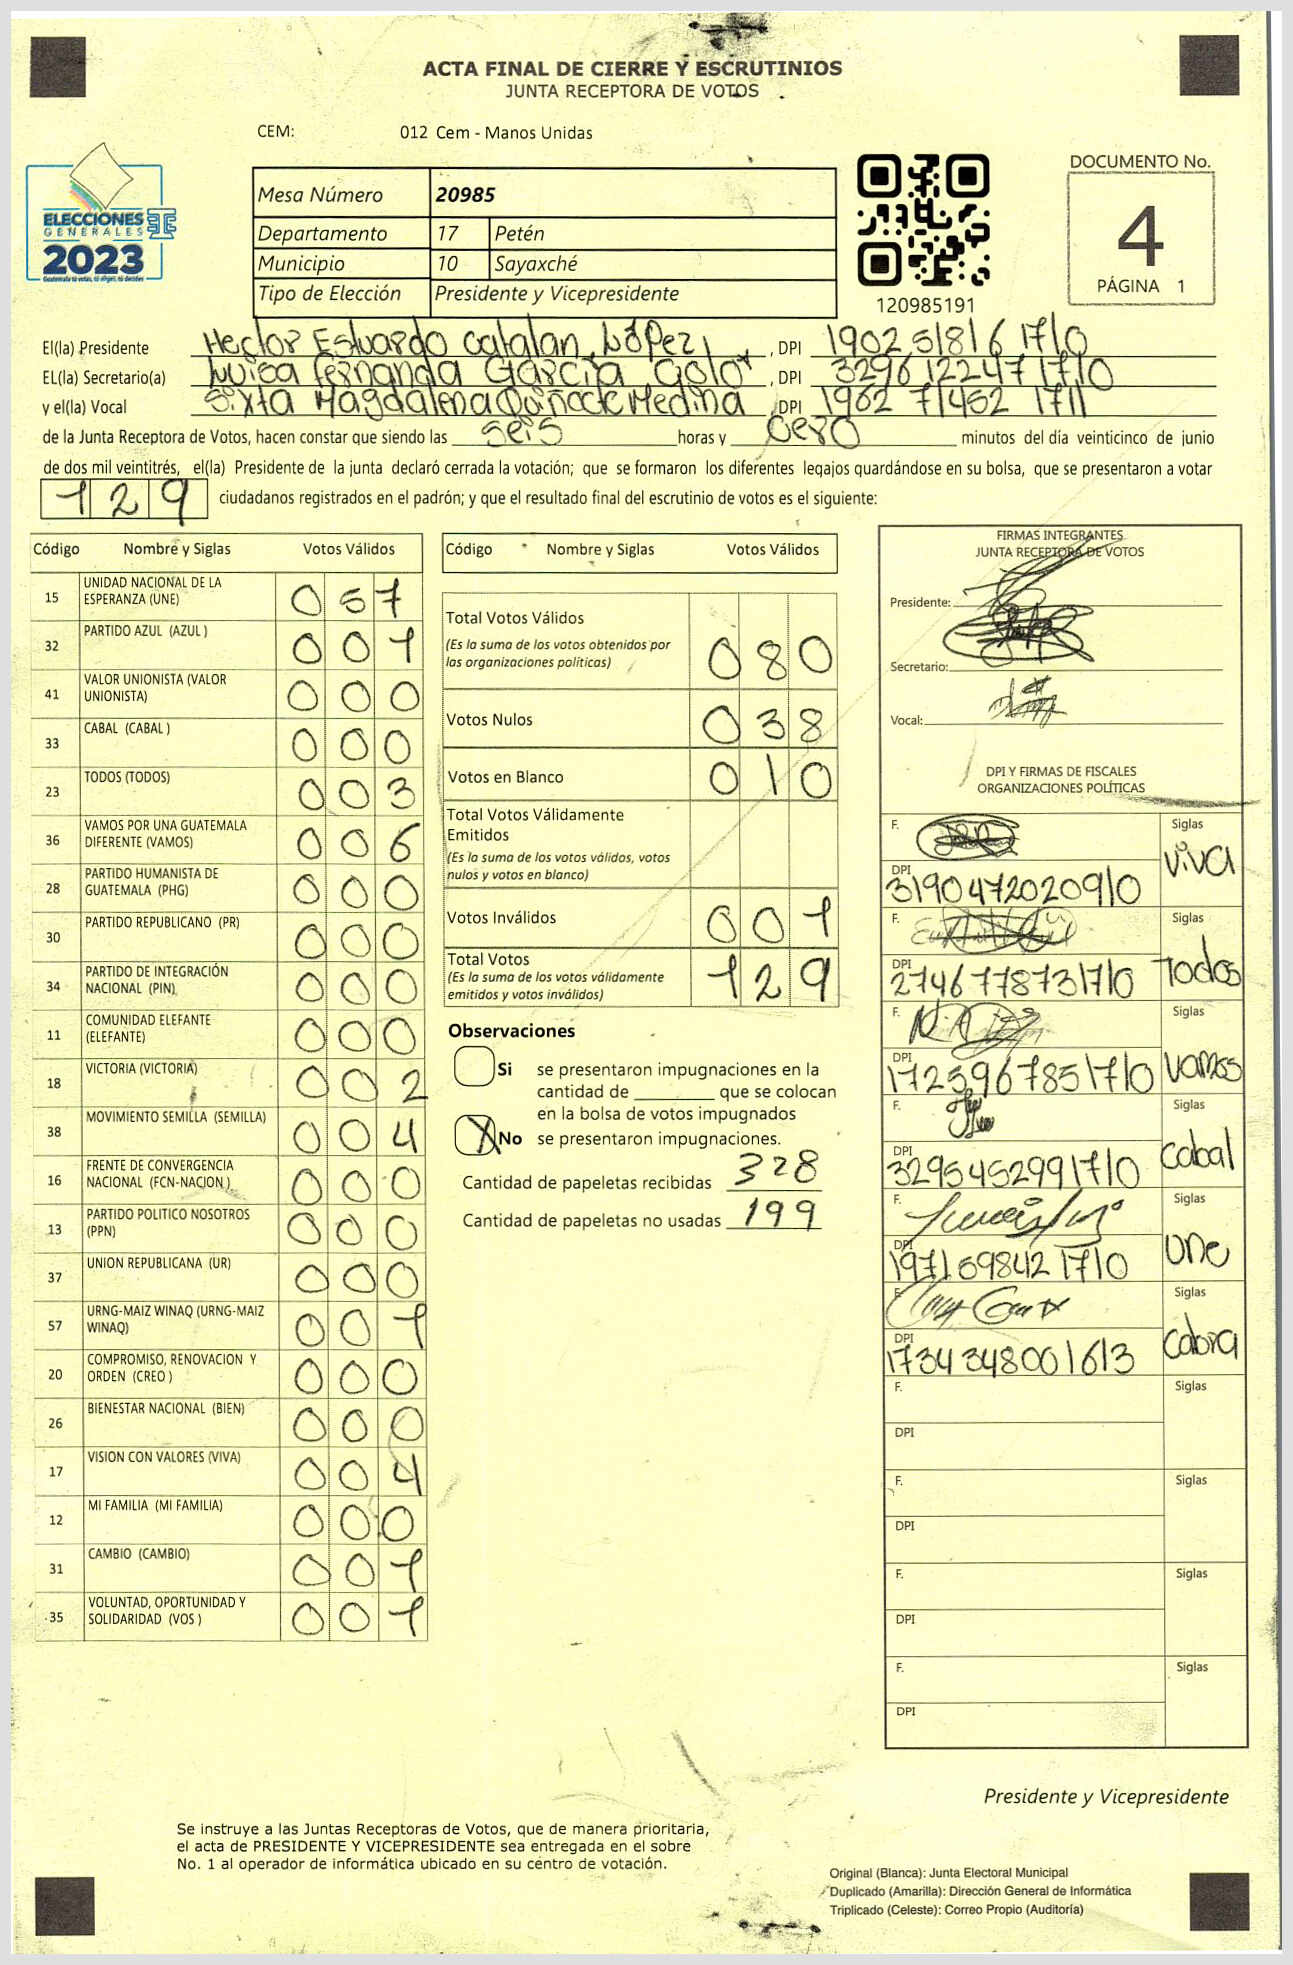 ACTA FINAL DE CIERRE Y ESCRUTINIOS
JUNTA RECEPTORA DE VOTOS
CEM: 012 Cem - Manos Unidas
ELECCIONES
GENERALES
2023
Guatemala tú votas, tú eliges, tú decides
Mesa Número 20985
Departamento 17 Petén
Municipio 10 Sayaxché
Tipo de Elección Presidente y Vicepresidente
120985191
DOCUMENTO No.
4
PÁGINA 1
El(la) Presidente Hector Estuardo Catalan López, DPI 1902 51816 1710
EL(la) Secretario(a) Luisa Fernanda García, DPI 3296 12247 1710
y el(la) Vocal Sixta Magdalena Medina, DPI 1962 71452 1711
de la Junta Receptora de Votos, hacen constar que siendo las seis horas y cero minutos del día veinticinco de junio
de dos mil veintitrés, el(la) Presidente de la junta declaró cerrada la votación; que se formaron los diferentes legajos guardándose en su bolsa, que se presentaron a votar
129 ciudadanos registrados en el padrón; y que el resultado final del escrutinio de votos es el siguiente:
Código Nombre y Siglas Votos Válidos
15 UNIDAD NACIONAL DE LA ESPERANZA (UNE) 057
32 PARTIDO AZUL (AZUL ) 001
41 VALOR UNIONISTA (VALOR UNIONISTA) 000
33 CABAL (CABAL ) 000
23 TODOS (TODOS) 003
36 VAMOS POR UNA GUATEMALA DIFERENTE (VAMOS) 006
28 PARTIDO HUMANISTA DE GUATEMALA (PHG) 000
30 PARTIDO REPUBLICANO (PR) 000
34 PARTIDO DE INTEGRACIÓN NACIONAL (PIN) 000
11 COMUNIDAD ELEFANTE (ELEFANTE) 000
18 VICTORIA (VICTORIA) 002
38 MOVIMIENTO SEMILLA (SEMILLA) 004
16 FRENTE DE CONVERGENCIA NACIONAL (FCN-NACION ) 000
13 PARTIDO POLITICO NOSOTROS (PPN) 000
37 UNION REPUBLICANA (UR) 000
57 URNG-MAIZ WINAQ (URNG-MAIZ WINAQ) 001
20 COMPROMISO, RENOVACION Y ORDEN (CREO ) 000
26 BIENESTAR NACIONAL (BIEN) 000
17 VISION CON VALORES (VIVA) 004
12 MI FAMILIA (MI FAMILIA) 000
31 CAMBIO (CAMBIO) 001
35 VOLUNTAD, OPORTUNIDAD Y SOLIDARIDAD (VOS ) 001
Código Nombre y Siglas Votos Válidos
Total Votos Válidos 080
(Es la suma de los votos obtenidos por
las organizaciones políticas)
Votos Nulos 038
Votos en Blanco 010
Total Votos Válidamente
Emitidos
(Es la suma de los votos válidos, votos
nulos y votos en blanco)
Votos Inválidos 001
Total Votos 129
(Es la suma de los votos válidamente
emitidos y votos inválidos)
Observaciones
Si se presentaron impugnaciones en la
cantidad de ________ que se colocan
en la bolsa de votos impugnados
X No se presentaron impugnaciones.
Cantidad de papeletas recibidas 328
Cantidad de papeletas no usadas 199
FIRMAS INTEGRANTES
JUNTA RECEPTORA DE VOTOS
Presidente:
Secretario:
Vocal:
DPI Y FIRMAS DE FISCALES
ORGANIZACIONES POLÍTICAS
F. Siglas viva
DPI 3190472020910
F. Siglas Todos
DPI 2746778731710
F. Siglas vamos
DPI 1725967851710
F. Siglas cabal
DPI 3295452991710
F. Siglas une
DPI 1971598421710
F. Siglas cabra
DPI 1734348001613
F. Siglas
DPI
F. Siglas
DPI
F. Siglas
DPI
F. Siglas
DPI
Presidente y Vicepresidente
Se instruye a las Juntas Receptoras de Votos, que de manera prioritaria,
el acta de PRESIDENTE Y VICEPRESIDENTE sea entregada en el sobre
No. 1 al operador de informática ubicado en su centro de votación.
Original (Blanca): Junta Electoral Municipal
Duplicado (Amarilla): Dirección General de Informática
Triplicado (Celeste): Correo Propio (Auditoría)